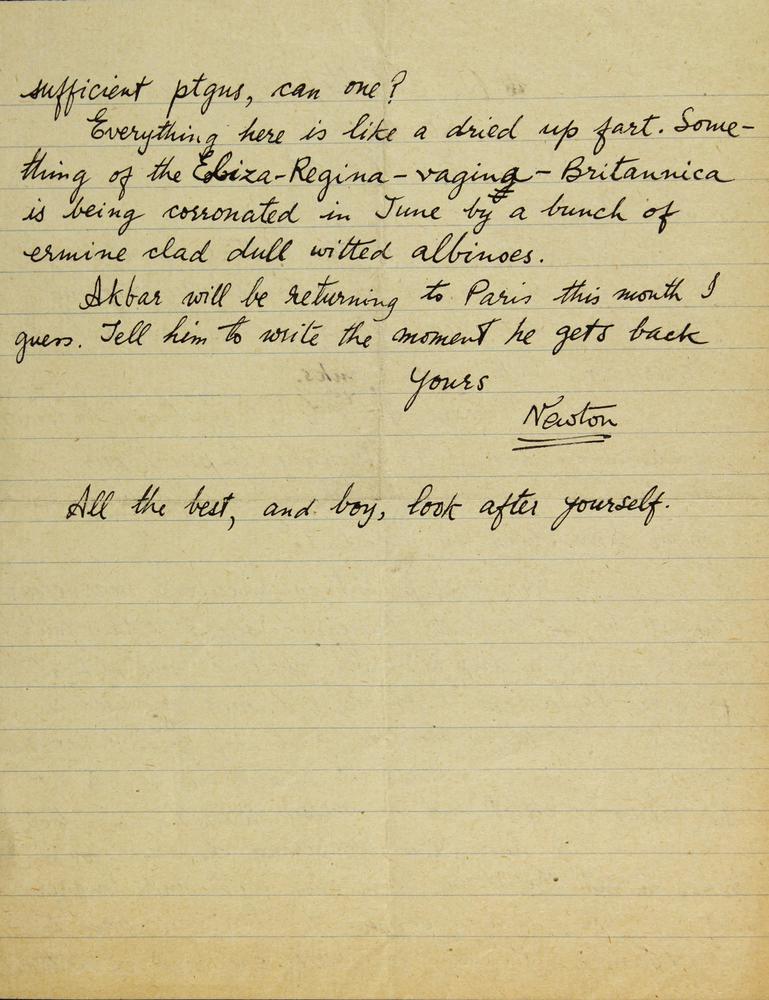 sufficient ptgns, can one?
Everything here is like a dried up fart. Some-
thing of the Eliza-Regina-vagina-Britannica
is being corronated in June by a bunch of
ermine clad dull witted albinoes.
Akbar will be returning to Paris this month I
guess. Tell him to write the moment he gets back
Yours
Newton
All the best, and boy, look after yourself.